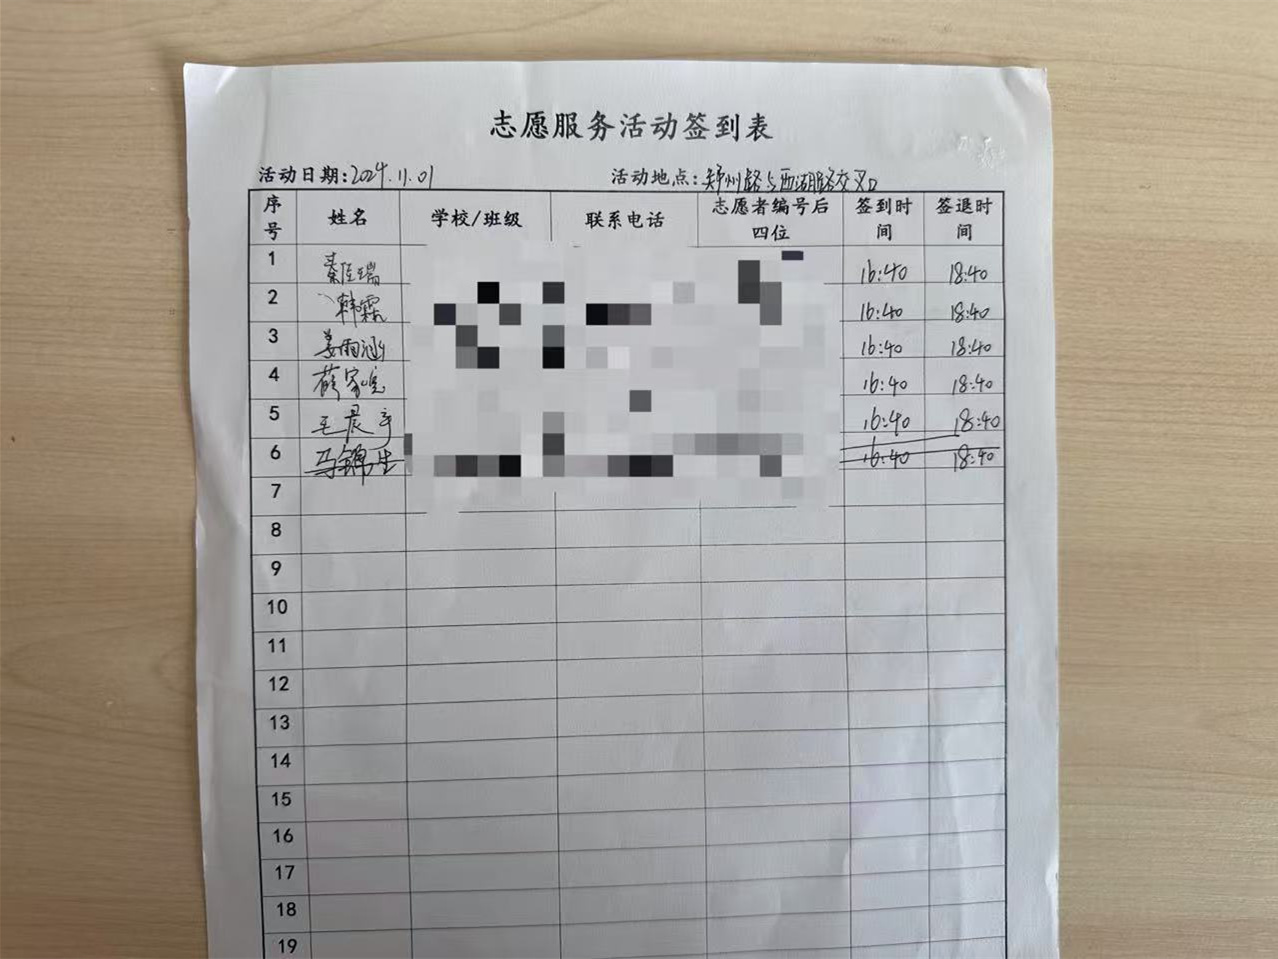 志愿服务活动签到表
活动日期:2024.11.01 活动地点:郑州路与西湖路交叉口
序号 姓名 学校/班级 联系电话 志愿者编号后四位 签到时间 签退时间
1 秦佳瑞 16:40 18:40
2 韩霖 16:40 18:40
3 姜雨涵 16:40 18:40
4 薛家 16:40 18:40
5 王晨宇 16:40 18:40
6 马锦生 16:40 18:40
7
8
9
10
11
12
13
14
15
16
17
18
19